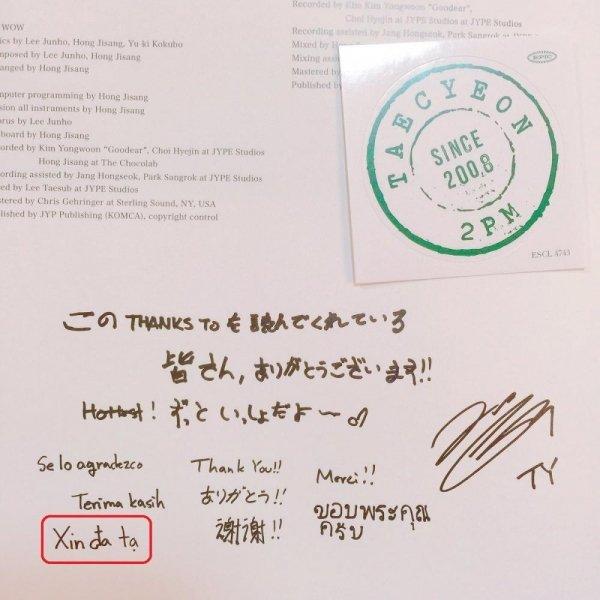 WOW
ics by Lee Junho, Hong Jisang, Yu-ki Kokubo
posed by Lee Junho, Hong Jisang
anged by Hong Jisang
puter programming by Hong Jisang
sion all instruments by Hong Jisang
orus by Lee Junho
board by Hong Jisang
orded by Kim Yongwoon "Goodear", Choi Hyejin at JYPE Studios
Hong Jisang at The Chocolab
ording assisted by Jang Hongseok, Park Sangrok at JYPE Studios
ed by Lee Taesub at JYPE Studios
stered by Chris Gehringer at Sterling Sound, NY, USA
blished by JYP Publishing (KOMCA), copyright control
Recorded by Kim Yongwoon "Goodear",
Choi Hyejin at JYPE Studios at JYPE Studios
Recording assisted by Jang Hongseok, Park Sangrok at
Mixed by H
Mixing assis
Mastered b
Published by
EPIC
TAECYEON
SINCE
2008
2PM
ESCL 4743
この THANKS TO を 読んでくれている
皆さん, ありがとうございます!!
Hottest! ずっと いっしょだよ〜♂
Se lo agradezco
Thank You!!
Merci!!
Terima kasih
ありがとう!!
ขอบพระคุณ
ครับ
Xin đa tạ
謝謝!!
TY